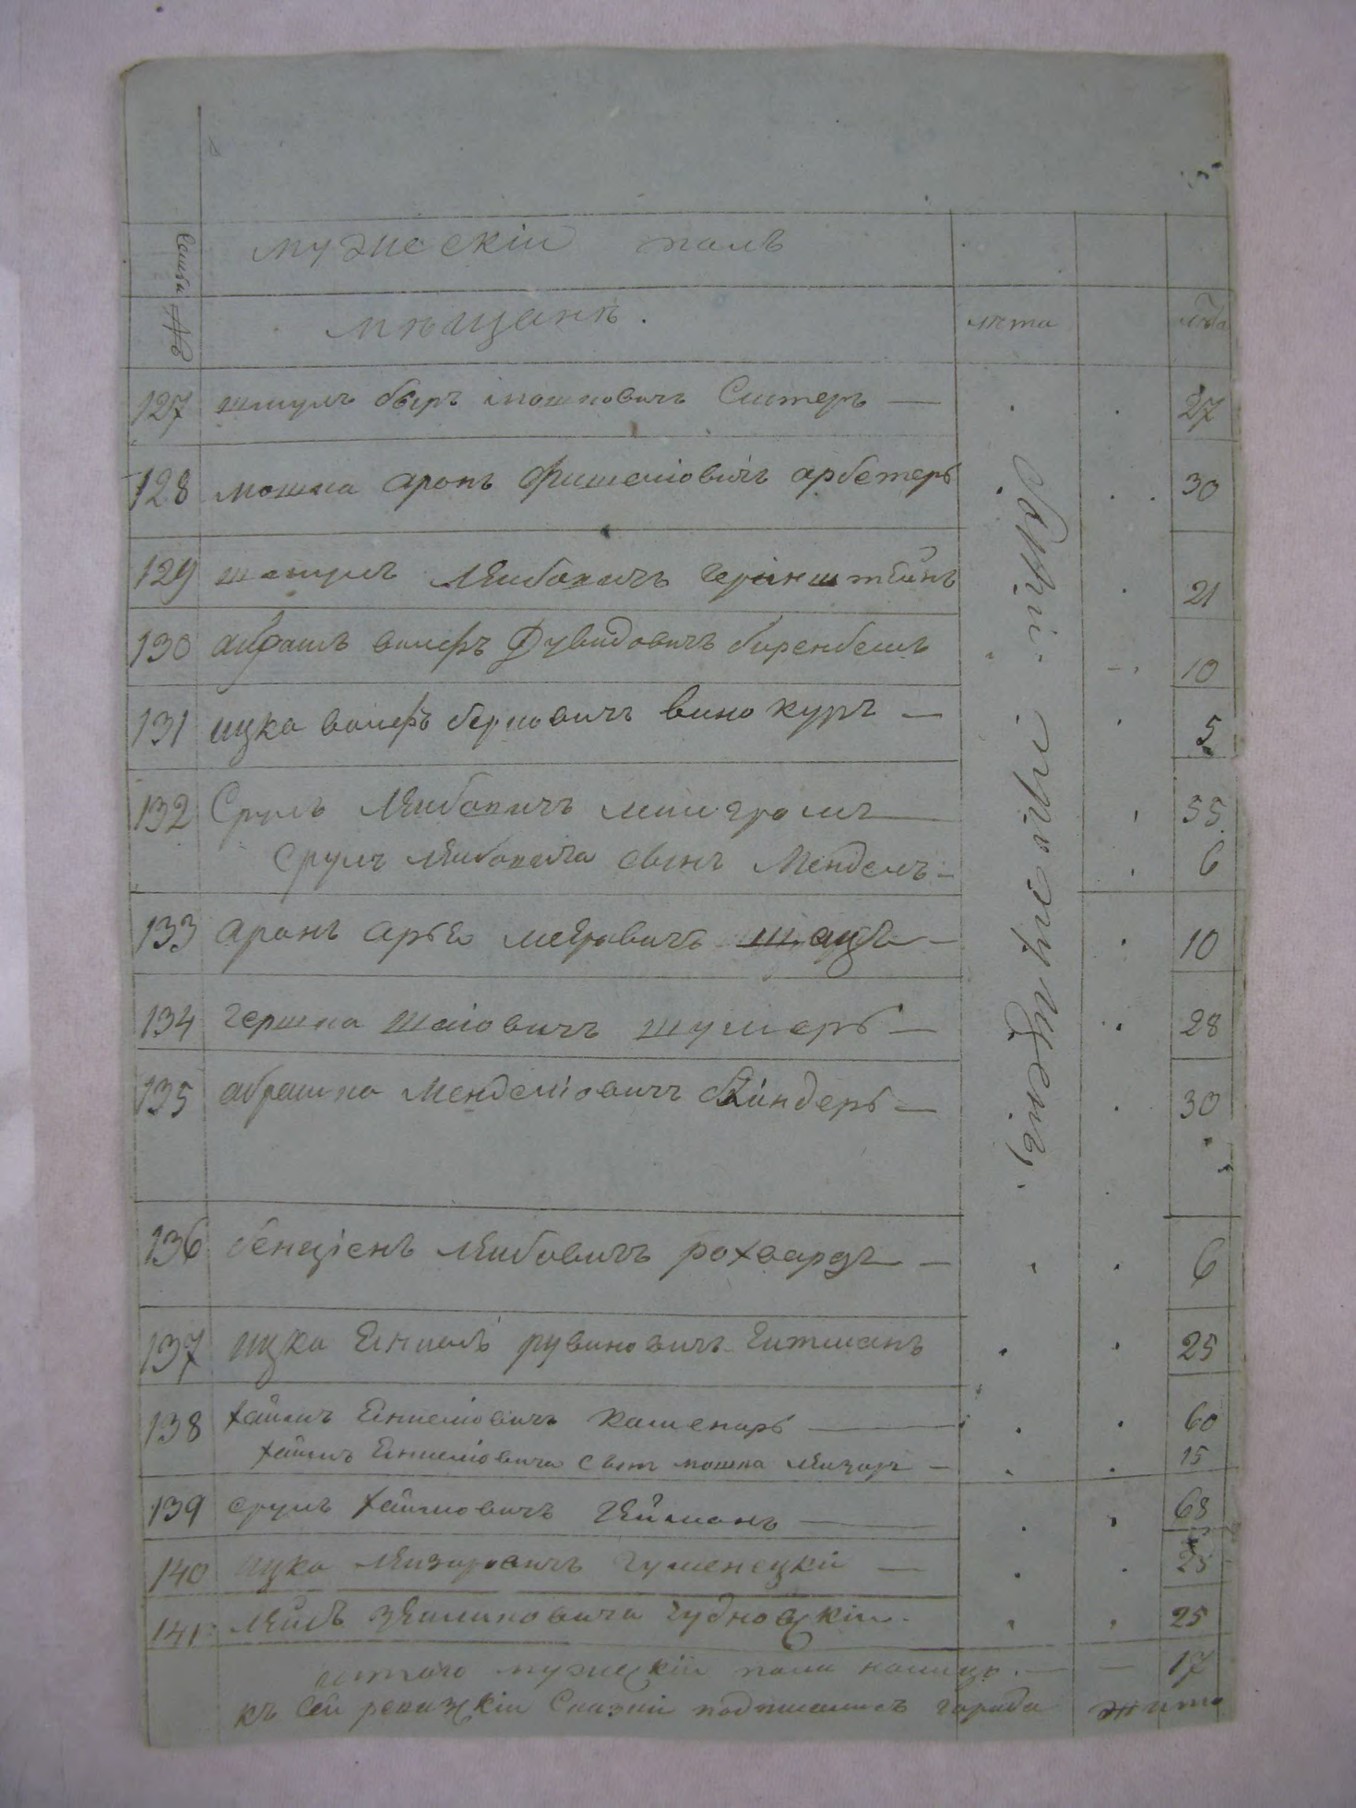 Семьи №
мужескiи полъ
мѣщанѣ.
лѣта
лѣта
127 шмуль бѣръ мошковичъ Ситеръ — 27
128 мошка аронъ Фишелiовичъ арбетеръ 30
129 шмулъ Леибовичъ геринштейнъ 21
130 абрамъ волфъ Дувидовичъ биренбемъ 10
131 ицка волфъ берковичъ винокуръ — 5
132 Срулъ Леибовичъ милгромъ 55
Срулъ Леибовича сынъ Менделъ — 6
133 аронъ арье меѣровичъ шацъ — 10
134 гершка шаiовичъ шумеръ — 28
135 абрашка Менделiовичъ биндеръ — 30
136 бенцiенъ Леибовичъ рохварзъ — 6
137 ицка Енкелъ рувиновичъ Гитманъ 25
138 хаимъ Енкелiовичъ каменаръ — 60
хаимъ Енкелiовича сынъ мошка Леизоръ — 15
139 срулъ хаимовичъ Гейманъ — 68
140 ицка Леизоровичъ гуменецкiй — 25
141 Лейбъ зелмановича чудновскiи 25
итого мужескiи пола налицо — 17
къ Сеи ревизскiи Сказки подписались города жито